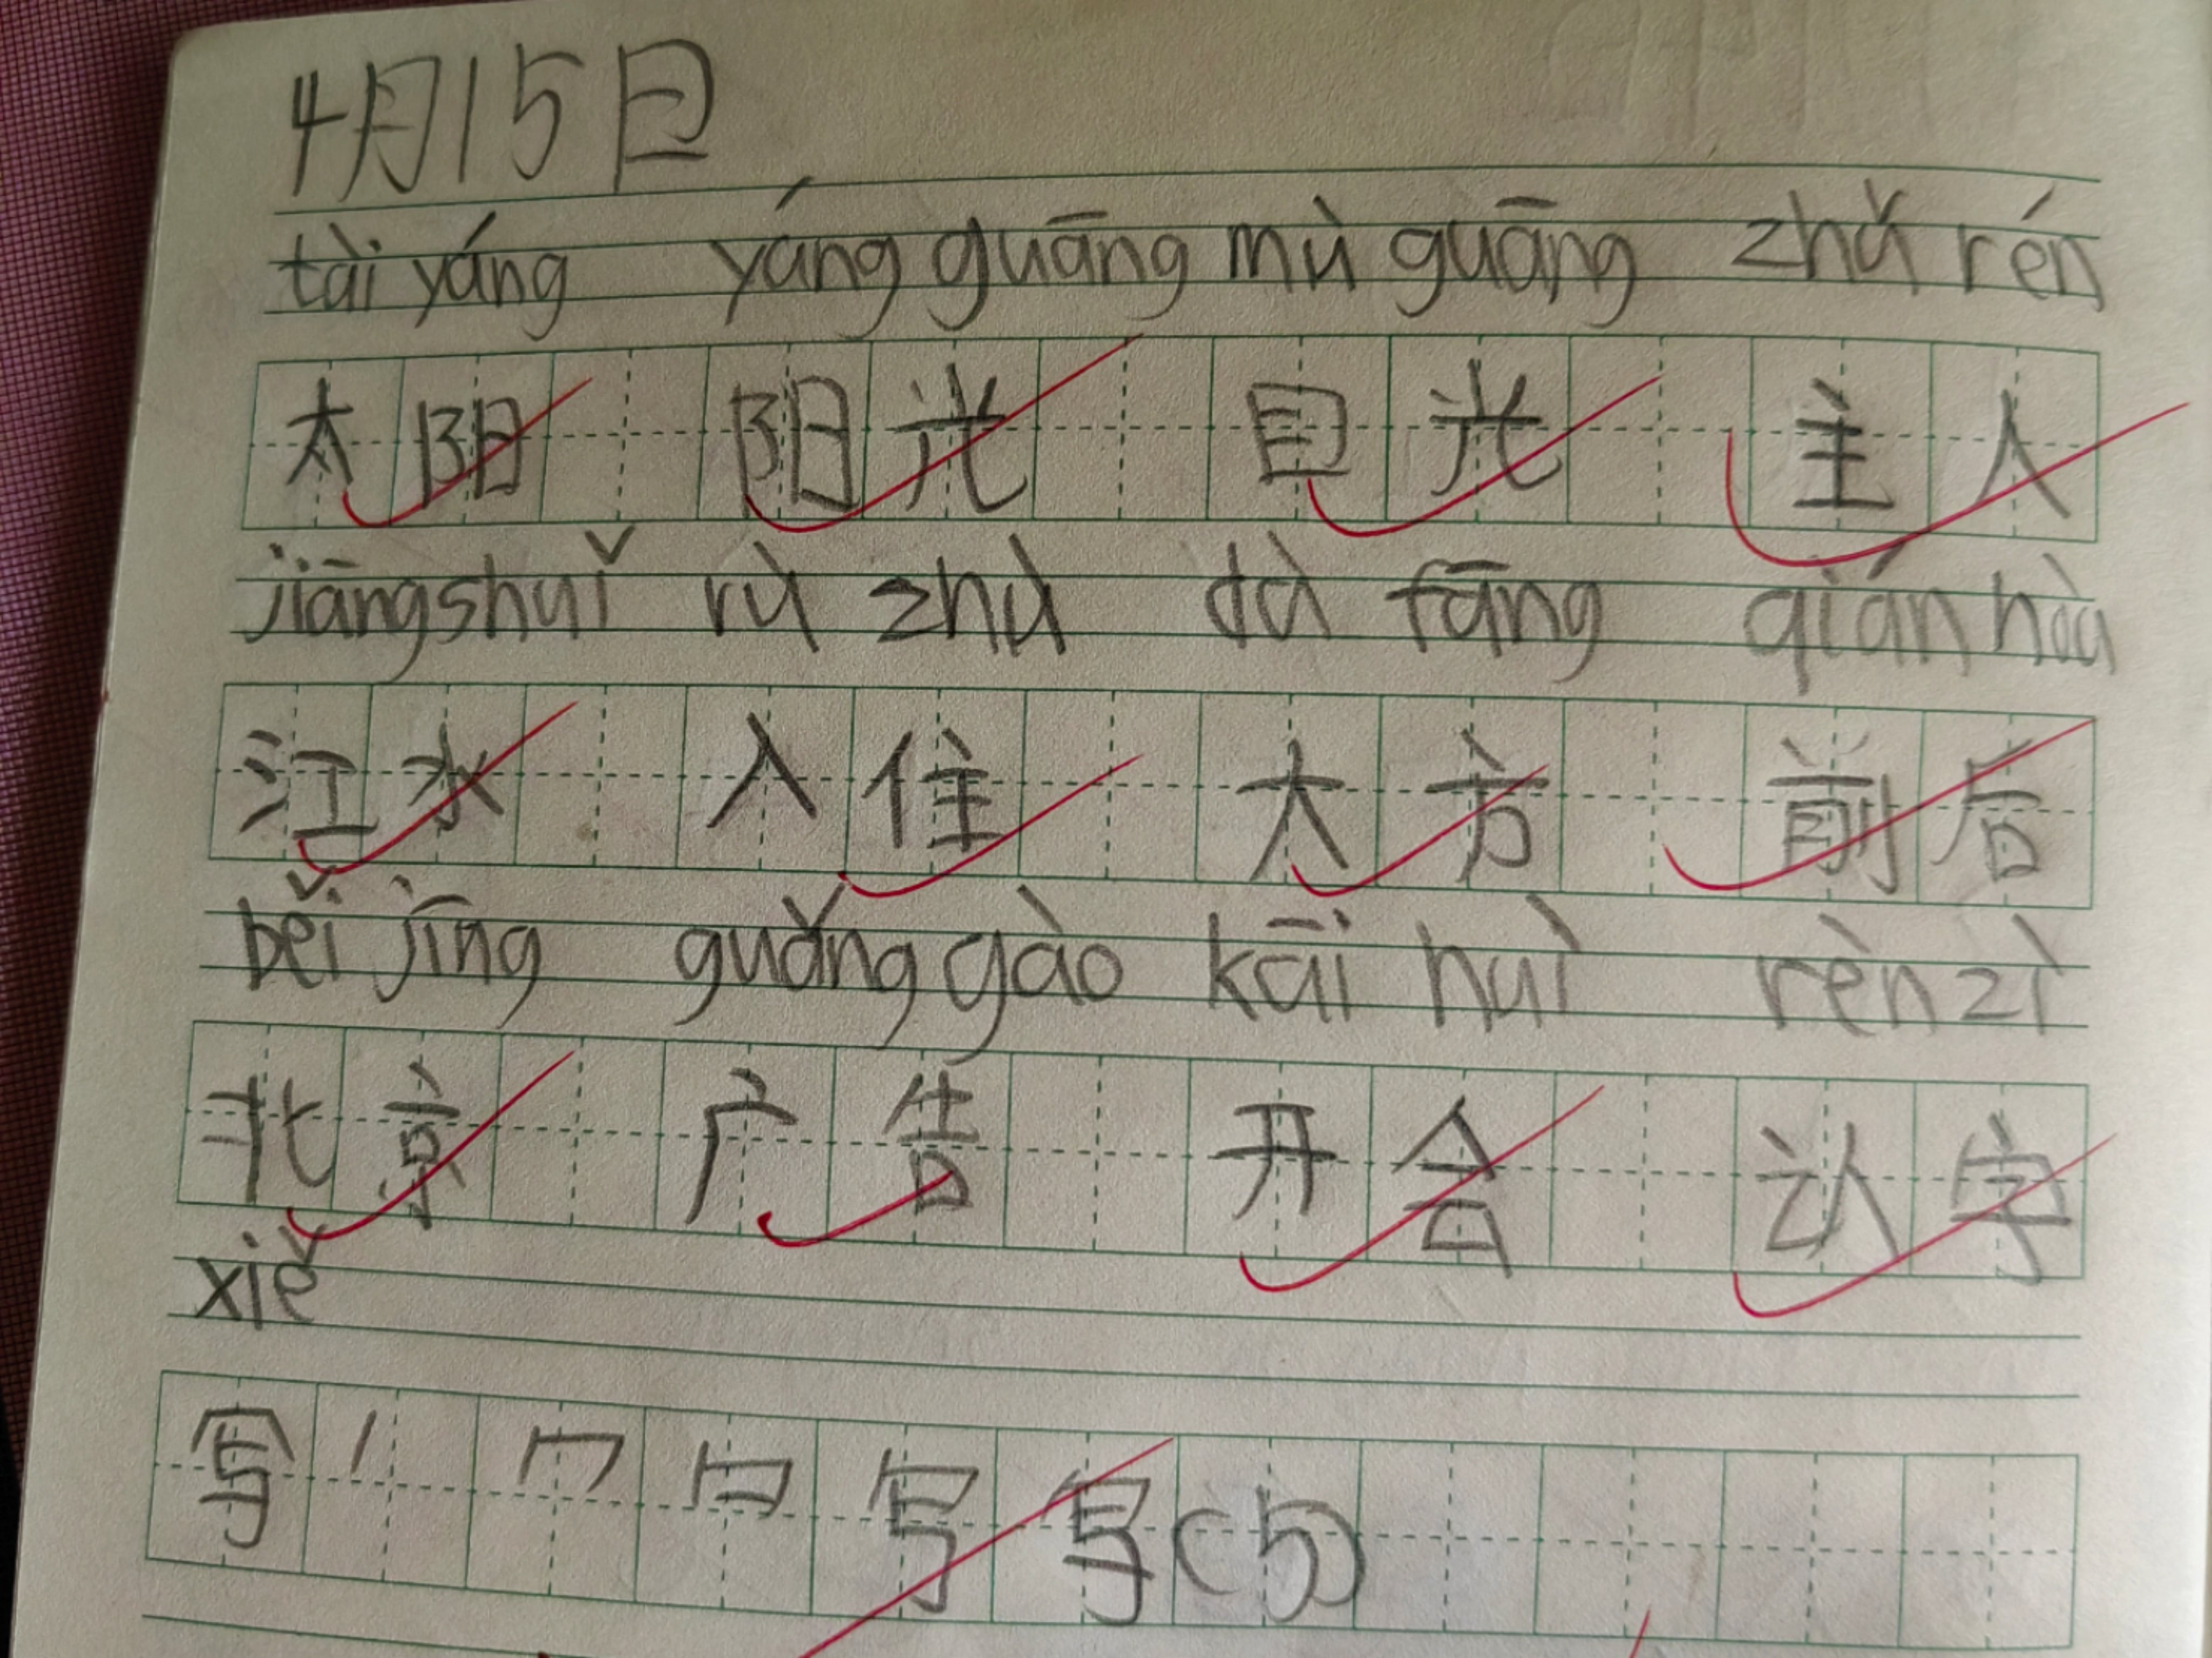 4月15日
tài yáng yáng guāng mù guāng zhǔ rén
太阳 阳光 目光 主人
jiāng shuǐ rù zhù dà fāng qián hòu
江水 入住 大方 前后
běi jīng guǎng gào kāi huì rèn zì
北京 广告 开会 认字
xiě
写 丨 冖 写 写 (5)